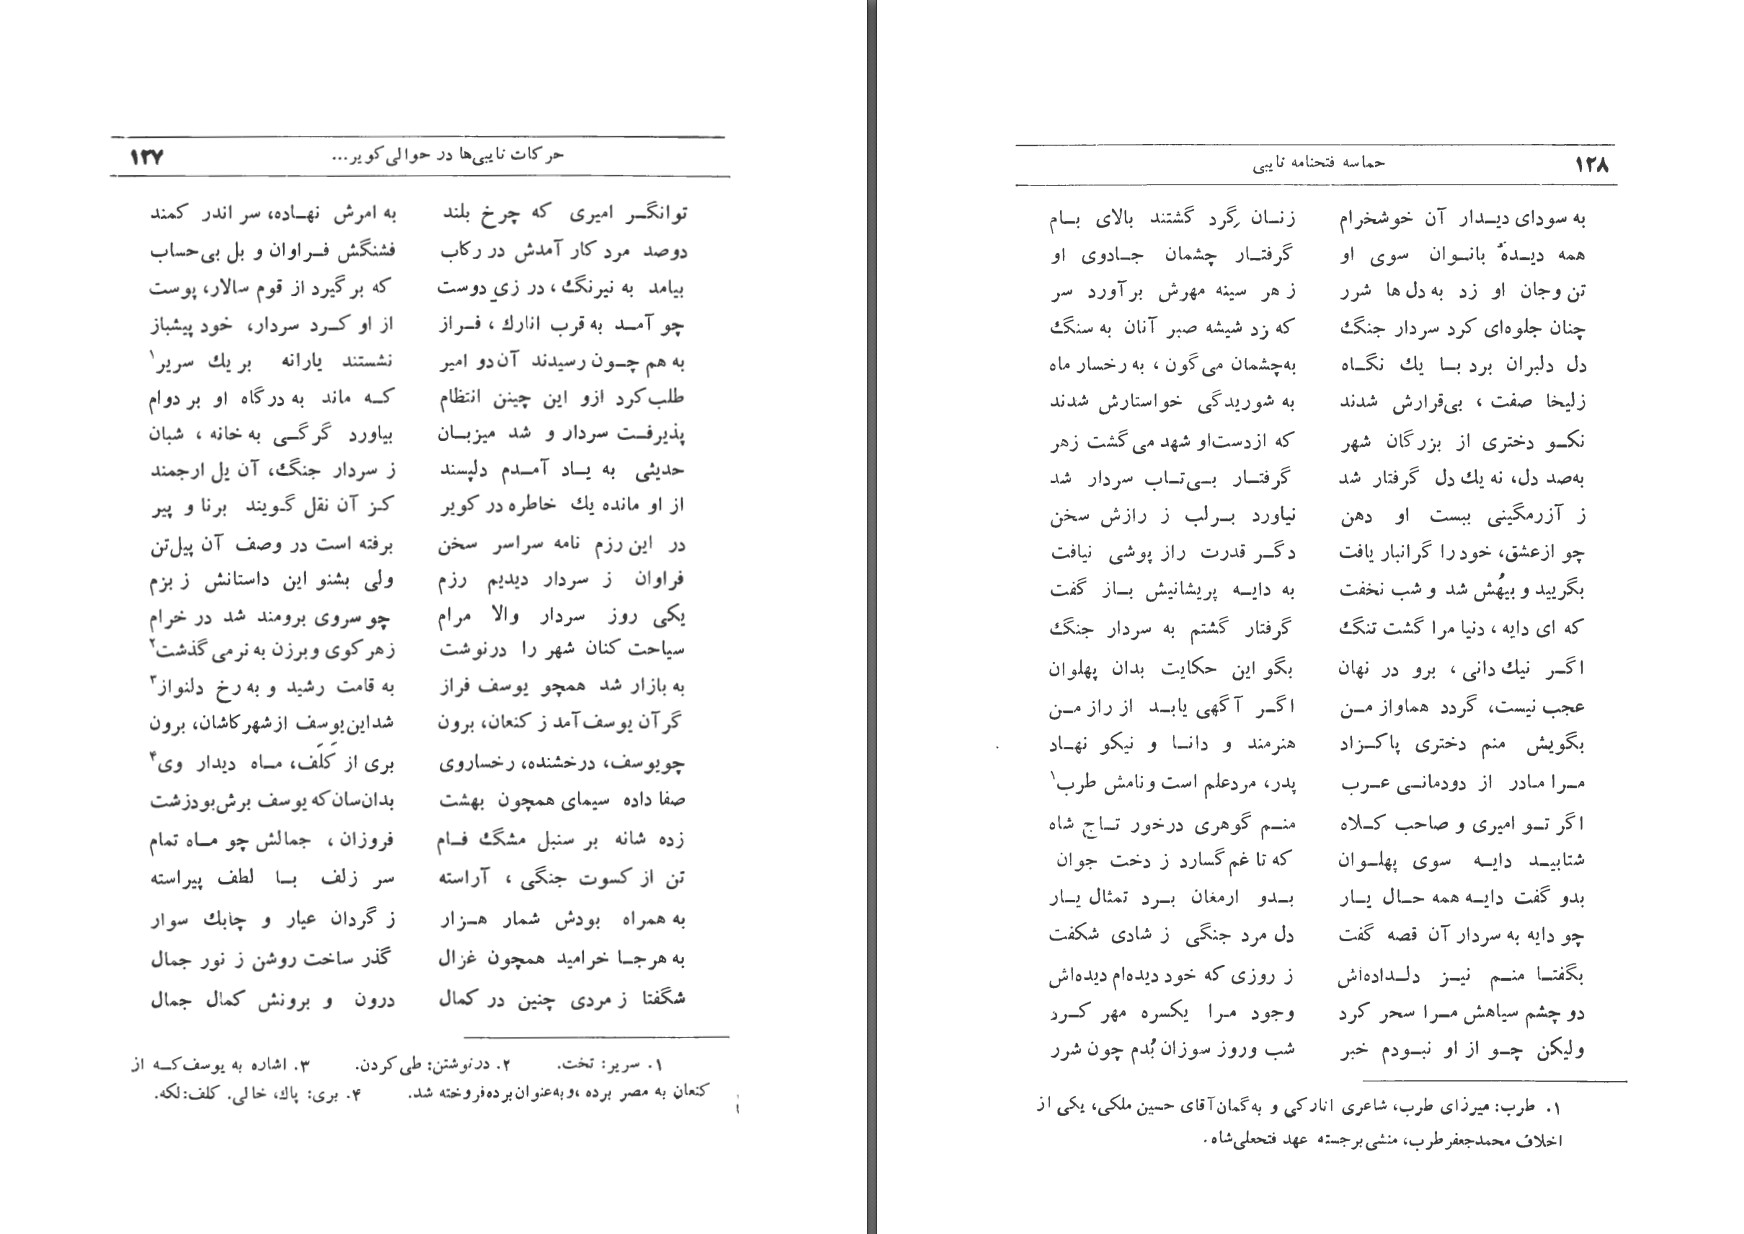 حرکات نایبی‌ها در حوالی کویر... ۱۲۷
توانگر امیری که چرخ بلند به امرش نهاده، سر اندر کمند
دوصد مرد کار آمدش در رکاب فشنگش فراوان و بل بی‌حساب
بیامد به نیرنگ، در زی دوست که برگیرد از قوم سالار، پوست
چو آمد به قرب انارك، فراز از او کرد سردار، خود پیشباز
به هم چون رسیدند آن دو امیر نشستند یارانه بر یك سریر۱
طلب کرد ازو این چنین انتظام که ماند به درگاه او بر دوام
پذیرفت سردار و شد میزبان بیاورد گرگی به خانه، شبان
حدیثی به یاد آمدم دلپسند ز سردار جنگ، آن یل ارجمند
از او مانده یك خاطره در کویر کز آن نقل گویند برنا و پیر
در این رزم نامه سراسر سخن برفته است در وصف آن پیل‌تن
فراوان ز سردار دیدیم رزم ولی بشنو این داستانش ز بزم
یکی روز سردار والا مرام چو سروی برومند شد در خرام
سیاحت کنان شهر را درنوشت ز هر کوی و برزن به نرمی گذشت۲
به بازار شد همچو یوسف فراز به قامت رشید و به رخ دلنواز۳
گر آن یوسف آمد ز کنعان، برون شد این یوسف از شهر کاشان، برون
چو یوسف، درخشنده، رخساروی بری از کَلَف، ماه دیدار وی۴
صفا داده سیمای همچون بهشت بدان‌سان که یوسف برش بود زشت
زده شانه بر سنبل مشگ فام فروزان، جمالش چو ماه تمام
تن از کسوت جنگی، آراسته سر زلف با لطف پیراسته
به همراه بودش شمار هزار ز گردان عیار و چابك سوار
به هرجا خرامید همچون غزال گذر ساخت روشن ز نور جمال
شگفتا ز مردی چنین در کمال درون و برونش کمال جمال
۱. سریر: تخت. ۲. درنوشتن: طی کردن. ۳. اشاره به یوسف که از
کنعان به مصر برده، و به عنوان برده فروخته شد. ۴. بری: پاك، خالی. کلف: لکه.
۱۲۸ حماسه فتحنامه نایبی
به سودای دیدار آن خوشخرام زنان گِرد گشتند بالای بام
همه دیدهٔ بانوان سوی او گرفتار چشمان جادوی او
تن وجان او زد به دل‌ها شرر ز هر سینه مهرش برآورد سر
چنان جلوه‌ای کرد سردار جنگ که زد شیشه صبر آنان به سنگ
دل دلبران برد با یك نگاه به چشمان می‌گون، به رخسار ماه
زلیخا صفت، بی‌قرارش شدند به شوریدگی خواستارش شدند
نکو دختری از بزرگان شهر که ازدست‌او شهد می‌گشت زهر
به‌صد دل، نه یك دل گرفتار شد گرفتار بی‌تاب سردار شد
ز آزرمگینی ببست او دهن نیاورد برلب ز رازش سخن
چو ازعشق، خود را گرانبار یافت دگر قدرت راز پوشی نیافت
بگریید و بیهُش شد و شب نخفت به دایه پریشانیش باز گفت
که ای دایه، دنیا مرا گشت تنگ گرفتار گشتم به سردار جنگ
اگر نیك دانی، برو در نهان بگو این حکایت بدان پهلوان
عجب نیست، گردد هماواز من اگر آگهی یابد از راز من
بگویش منم دختری پاکزاد هنرمند و دانا و نیکو نهاد
مرا مادر از دودمانی عرب پدر، مردعلم است و نامش طرب۱
اگر تو امیری و صاحب کلاه منم گوهری درخور تاج شاه
شتابید دایه سوی پهلوان که تا غم گسارد ز دخت جوان
بدو گفت دایه همه حال یار بدو ارمغان برد تمثال یار
چو دایه به سردار آن قصه گفت دل مرد جنگی ز شادی شکفت
بگفتا منم نیز دلداده‌اش ز روزی که خود دیده‌ام دیده‌اش
دو چشم سیاهش مرا سحر کرد وجود مرا یکسره مهر کرد
ولیکن چو از او نبودم خبر شب وروز سوزان بُدم چون شرر
۱. طرب: میرزای طرب، شاعری انارکی و به گمان آقای حسین ملکی، یکی از
اخلاف محمدجعفر طرب، منشی برجسته عهد فتحعلی‌شاه.